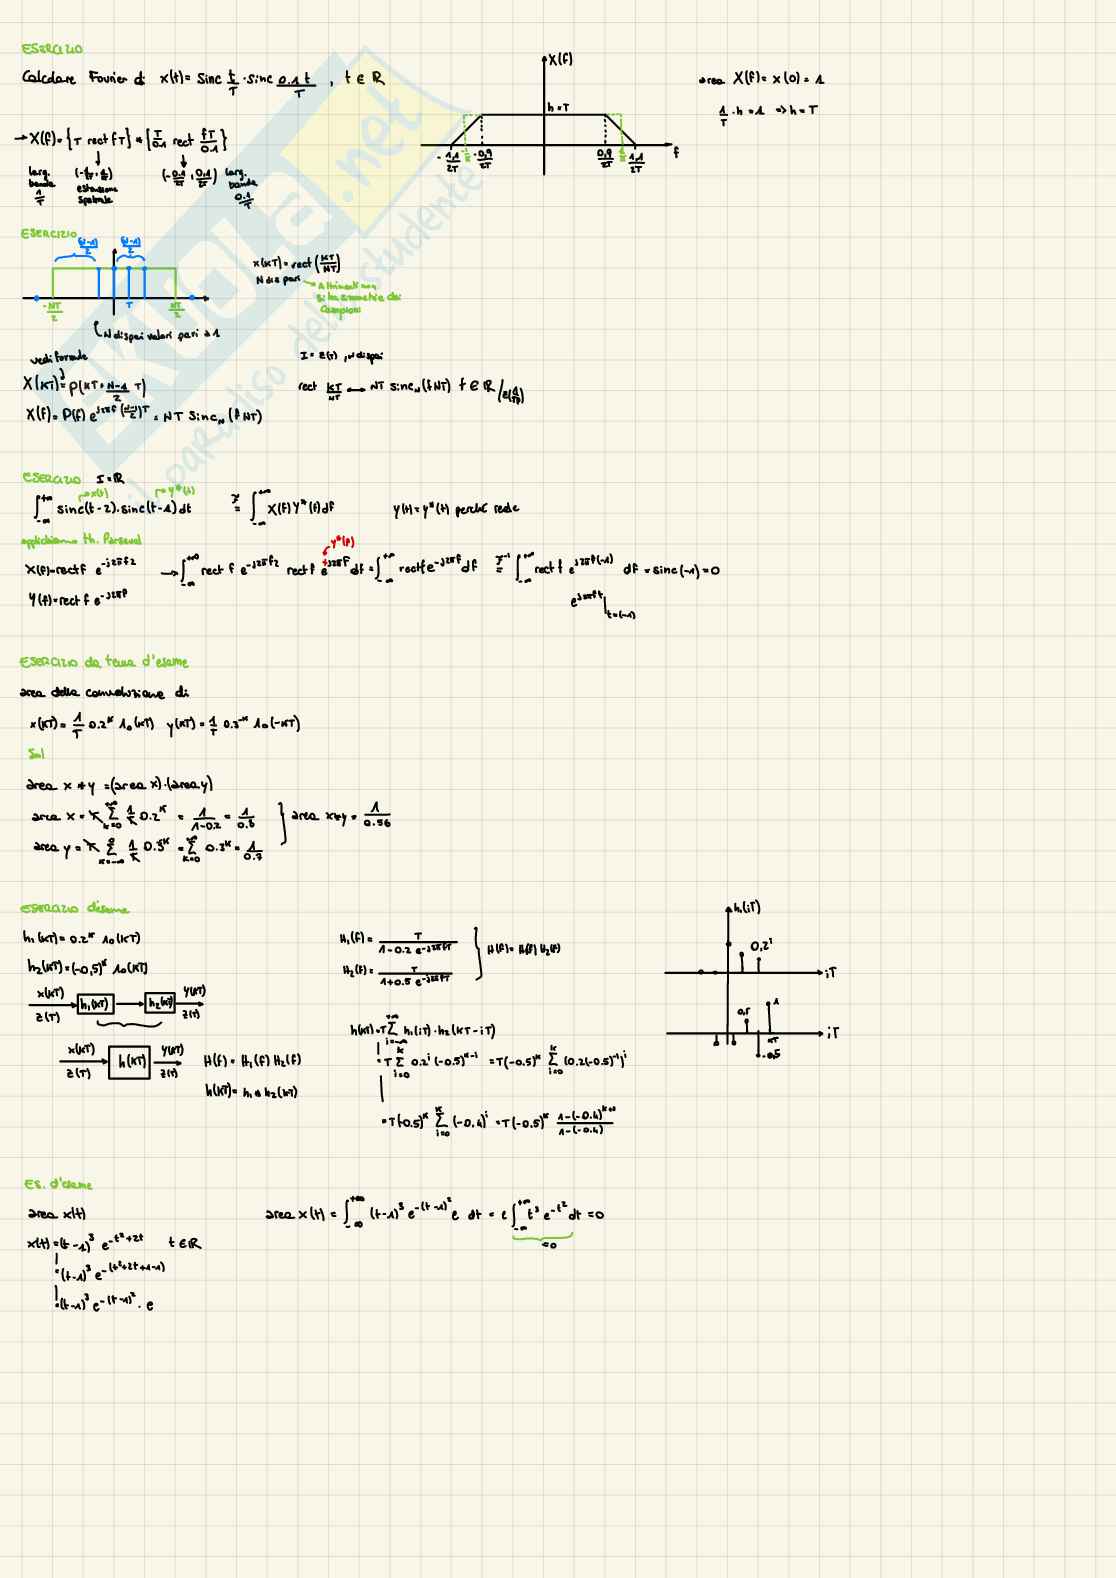 ESERCIZIO
Calcolare Fourier di x(t) = sinc t/T · sinc 0.1 t/T , t ∈ ℝ
→ X(f) = {T rect fT} * {T/0.1 rect fT/0.1}
larg. banda 1/T
(-1/2T, 1/2T) estensione spettrale
(-0.1/2T, 0.1/2T)
larg. banda 0.1/T
X(f)
h = T
-1,1/2T -0,9/2T 0,9/2T 1,1/2T f
area X(f) = x(0) = 1
1/T · h = 1 ⇒ h = T
ESERCIZIO
(N-1)/2 (N-1)/2
-NT/2 T NT/2
N dispari valori pari a 1
x(kT) = rect (kT/NT)
N dispari
Altrimenti non
si ha simmetria dei
campioni
vedi formule
X(kT) = p(kT + N-1/2 T)
X(f) = P(f) e^j2πf(N-1/2)T = NT sinc_N (f NT)
I = Z(T) , N dispari
rect kT/NT ⟷ NT sinc_N (f NT) f ∈ ℝ/Z(1/T)
ESERCIZIO I = ℝ
→ x(t) → y*(t)
∫_-∞^+∞ sinc(t-2) · sinc(t-1) dt =^F ∫_-∞^+∞ X(f) Y*(f) df y(t) = y*(t) perché reale
applichiamo th. Parseval
Y*(f)
X(f) = rect f e^-j2πf2 → ∫_-∞^+∞ rect f e^-j2πf2 rect f e^j2πf df = ∫_-∞^+∞ rect f e^-j2πf df =^F⁻¹ ∫_-∞^+∞ rect f e^j2πf(-1) df = sinc(-1) = 0
Y(f) = rect f e^-j2πf
e^j2πft |_t=(-1)
ESERCIZIO da tema d'esame
area della convoluzione di
x(kT) = 1/T 0.2^k 1₀(kT) y(kT) = 1/T 0.3^-k 1₀(-kT)
Sol
area x * y = (area x) · (area y)
area x = T Σ_k=0^+∞ 1/T 0.2^k = 1/1-0.2 = 1/0.8
area y = T Σ_k=-∞^0 1/T 0.3^k = Σ_k=0^∞ 0.3^k = 1/0.7
} area x*y = 1/0.56
ESERCIZIO d'esame
h₁(kT) = 0.2^k 1₀(kT)
h₂(kT) = (-0,5)^k 1₀(kT)
x(kT) h₁(kT) h₂(kT) y(kT)
Z(T) Z(T)
x(kT) h(kT) y(kT)
Z(T) Z(T)
H(f) = H₁(f) H₂(f)
h(kT) = h₁ * h₂(kT)
H₁(f) = T/1-0.2 e^-j2πfT
H₂(f) = T/1+0.5 e^-j2πfT
} H(f) = H₁(f) H₂(f)
h(kT) = T Σ_i=-∞^+∞ h₁(iT) · h₂(kT-iT)
= T Σ_i=0^k 0.2^i (-0.5)^k-i = T(-0.5)^k Σ_i=0^k (0.2(-0.5)^-1)^i
= T(-0.5)^k Σ_i=0^k (-0.4)^i = T(-0.5)^k 1-(-0.4)^k+1/1-(-0.4)
h₁(iT)
0,2^i
iT
0,5 1
kT iT
-0,5
Es. d'esame
area x(t)
x(t) = (t-1)³ e^-t²+2t t ∈ ℝ
= (t-1)³ e^-(t²+2t+1-1)
= (t-1)³ e^-(t-1)² · e
area x(t) = ∫_-∞^+∞ (t-1)³ e^-(t-1)² e dt = e ∫_-∞^+∞ t³ e^-t² dt = 0
=0
skuola.net
il paradiso dello studente